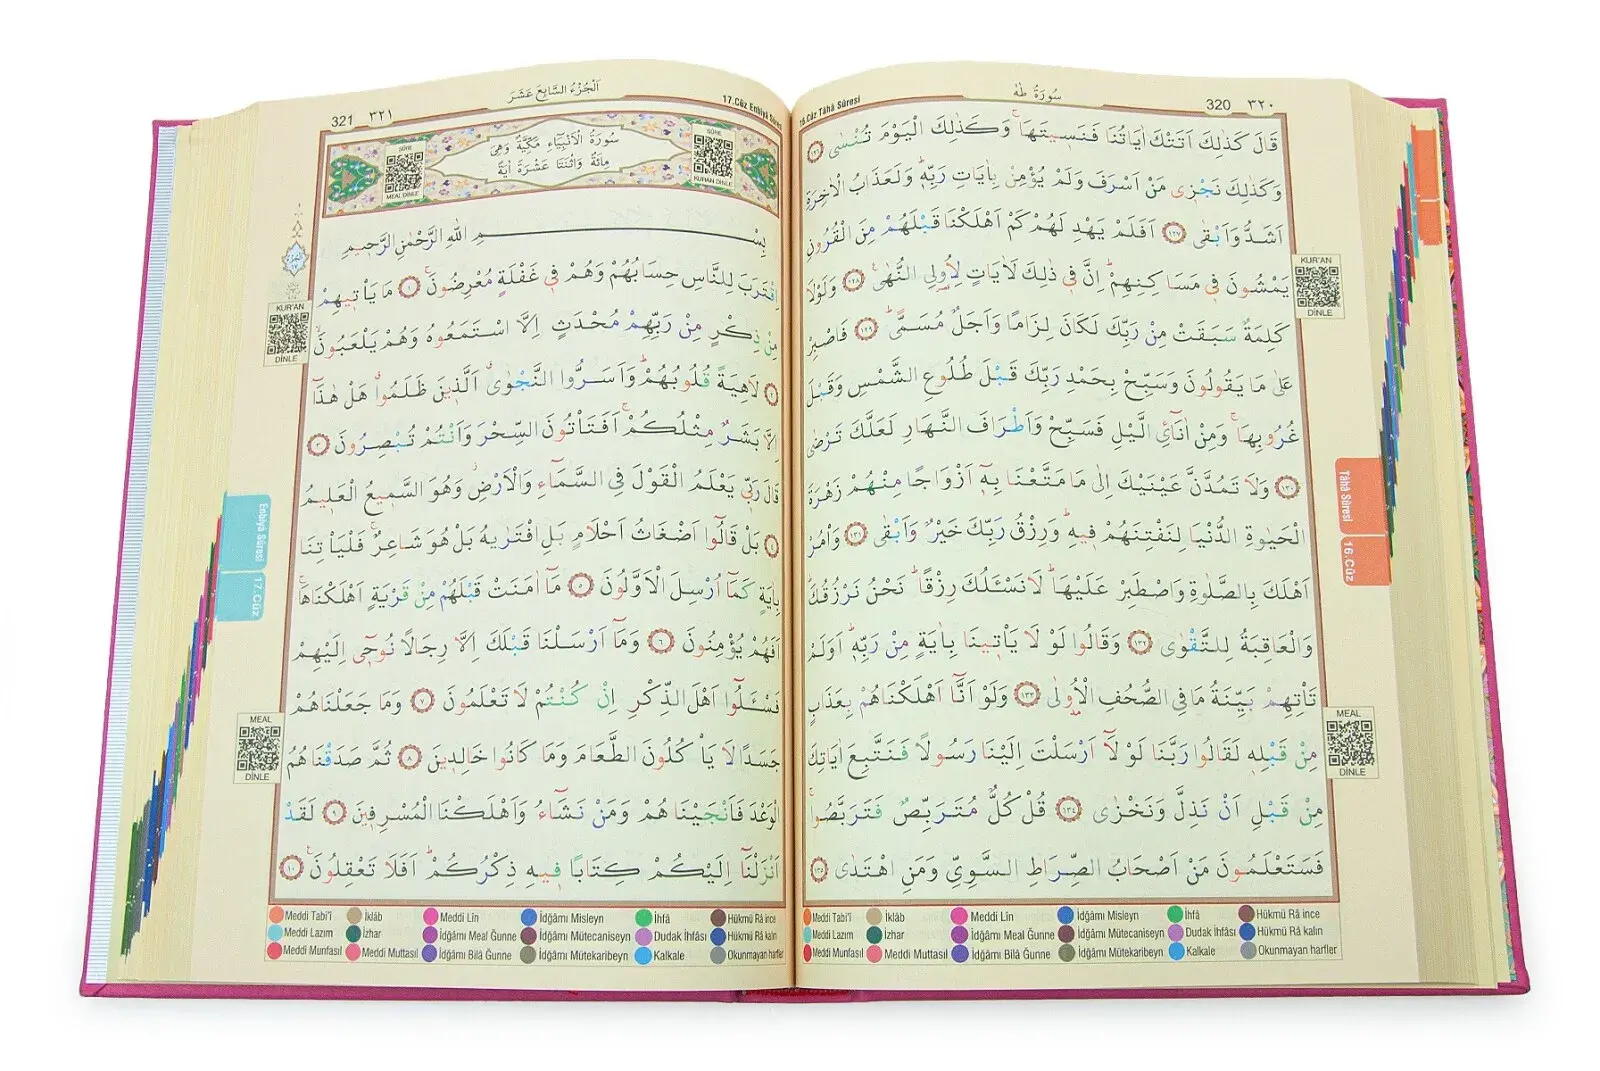 سُورَةُ طٰهٰ
16.Cüz Tâhâ Sûresi
320 ٣٢٠
قَالَ كَذٰلِكَ اَتَتْكَ اٰيَاتُنَا فَنَسٖيتَهَاۚ وَكَذٰلِكَ الْيَوْمَ تُنْسٰى ﴿١٢٦﴾
وَكَذٰلِكَ نَجْزٖى مَنْ اَسْرَفَ وَلَمْ يُؤْمِنْ بِاٰيَاتِ رَبِّهٖۜ وَلَعَذَابُ الْاٰخِرَةِ
اَشَدُّ وَاَبْقٰى ﴿١٢٧﴾ اَفَلَمْ يَهْدِ لَهُمْ كَمْ اَهْلَكْنَا قَبْلَهُمْ مِنَ الْقُرُونِ
يَمْشُونَ فٖى مَسَاكِنِهِمْۜ اِنَّ فٖى ذٰلِكَ لَاٰيَاتٍ لِاُو۬لِى النُّهٰىۚ ﴿١٢٨﴾ وَلَوْلَا
كَلِمَةٌ سَبَقَتْ مِنْ رَبِّكَ لَكَانَ لِزَامًا وَاَجَلٌ مُسَمًّىۜ ﴿١٢٩﴾ فَاصْبِرْ
عَلٰى مَا يَقُولُونَ وَسَبِّحْ بِحَمْدِ رَبِّكَ قَبْلَ طُلُوعِ الشَّمْسِ وَقَبْلَ
غُرُوبِهَاۚ وَمِنْ اٰنَآئِ الَّيْلِ فَسَبِّحْ وَاَطْرَافَ النَّهَارِ لَعَلَّكَ تَرْضٰى
﴿١٣٠﴾ وَلَا تَمُدَّنَّ عَيْنَيْكَ اِلٰى مَا مَتَّعْنَا بِهٖٓ اَزْوَاجًا مِنْهُمْ زَهْرَةَ
الْحَيٰوةِ الدُّنْيَا لِنَفْتِنَهُمْ فٖيهِۜ وَرِزْقُ رَبِّكَ خَيْرٌ وَاَبْقٰى ﴿١٣١﴾ وَأْمُرْ
اَهْلَكَ بِالصَّلٰوةِ وَاصْطَبِرْ عَلَيْهَاۜ لَا نَسْـَٔلُكَ رِزْقًاۜ نَحْنُ نَرْزُقُكَۜ
وَالْعَاقِبَةُ لِلتَّقْوٰى ﴿١٣٢﴾ وَقَالُوا لَوْ لَا يَأْتٖينَا بِاٰيَةٍ مِنْ رَبِّهٖۜ اَوَلَمْ
تَأْتِهِمْ بَيِّنَةُ مَا فِى الصُّحُفِ الْاُو۫لٰى ﴿١٣٣﴾ وَلَوْ اَنَّٓا اَهْلَكْنَاهُمْ بِعَذَابٍ
مِنْ قَبْلِهٖ لَقَالُوا رَبَّنَا لَوْ لَٓا اَرْسَلْتَ اِلَيْنَا رَسُولًا فَنَتَّبِعَ اٰيَاتِكَ
مِنْ قَبْلِ اَنْ نَذِلَّ وَنَخْزٰى ﴿١٣٤﴾ قُلْ كُلٌّ مُتَرَبِّصٌ فَتَرَبَّصُواۚ
فَسَتَعْلَمُونَ مَنْ اَصْحَابُ الصِّرَاطِ السَّوِىِّ وَمَنِ اهْتَدٰى ﴿١٣٥﴾
KUR'AN
DİNLE
Tâhâ Sûresi
16.Cüz
MEAL
DİNLE
Meddi Tabi'î İklâb Meddi Lîn İdğâmı Misleyn İhfâ Hükmü Râ ince
Meddi Lazım İzhar İdğâmı Meal Ğunne İdğâmı Mütecaniseyn Dudak İhfâsı Hükmü Râ kalın
Meddi Munfasıl Meddi Muttasıl İdğâmı Bilâ Ğunne İdğâmı Mütekaribeyn Kalkale Okunmayan harfler
اَلْجُزْءُ السَّابِعَ عَشَرَ
17.Cüz Enbiyâ Sûresi
321 ٣٢١
سُورَةُ الْاَنْبِيَاءِ مَكِّيَّةٌ وَهِىَ
مِائَةٌ وَاثْنَتَا عَشْرَةَ اٰيَةً
SÛRE
KUR'AN DİNLE
SÛRE
MEAL DİNLE
بِسْمِ اللّٰهِ الرَّحْمٰنِ الرَّحٖيمِ
اِقْتَرَبَ لِلنَّاسِ حِسَابُهُمْ وَهُمْ فٖى غَفْلَةٍ مُعْرِضُونَۚ ﴿١﴾ مَا يَأْتٖيهِمْ
مِنْ ذِكْرٍ مِنْ رَبِّهِمْ مُحْدَثٍ اِلَّا اسْتَمَعُوهُ وَهُمْ يَلْعَبُونَۙ
﴿٢﴾ لَاهِيَةً قُلُوبُهُمْۜ وَاَسَرُّوا النَّجْوٰىۗ اَلَّذٖينَ ظَلَمُواۗ هَلْ هٰذَٓا
اِلَّا بَشَرٌ مِثْلُكُمْۚ اَفَتَأْتُونَ السِّحْرَ وَاَنْتُمْ تُبْصِرُونَ ﴿٣﴾
قَالَ رَبّٖى يَعْلَمُ الْقَوْلَ فِى السَّمَٓاءِ وَالْاَرْضِۘ وَهُوَ السَّمٖيعُ الْعَلٖيمُ
﴿٤﴾ بَلْ قَالُٓوا اَضْغَاثُ اَحْلَامٍ بَلِ افْتَرٰيهُ بَلْ هُوَ شَاعِرٌۚ فَلْيَأْتِنَا
بِاٰيَةٍ كَمَٓا اُرْسِلَ الْاَوَّلُونَ ﴿٥﴾ مَٓا اٰمَنَتْ قَبْلَهُمْ مِنْ قَرْيَةٍ اَهْلَكْنَاهَاۚ
اَفَهُمْ يُؤْمِنُونَ ﴿٦﴾ وَمَٓا اَرْسَلْنَا قَبْلَكَ اِلَّا رِجَالًا نُوحٖٓى اِلَيْهِمْ
فَسْـَٔلُٓوا اَهْلَ الذِّكْرِ اِنْ كُنْتُمْ لَا تَعْلَمُونَ ﴿٧﴾ وَمَا جَعَلْنَاهُمْ
جَسَدًا لَا يَأْكُلُونَ الطَّعَامَ وَمَا كَانُوا خَالِدٖينَ ﴿٨﴾ ثُمَّ صَدَقْنَاهُمُ
الْوَعْدَ فَاَنْجَيْنَاهُمْ وَمَنْ نَشَٓاءُ وَاَهْلَكْنَا الْمُسْرِفٖينَ ﴿٩﴾ لَقَدْ
اَنْزَلْنَٓا اِلَيْكُمْ كِتَابًا فٖيهِ ذِكْرُكُمْۜ اَفَلَا تَعْقِلُونَۚ ﴿١٠﴾
KUR'AN
DİNLE
Enbiyâ Sûresi
17.Cüz
MEAL
DİNLE
Meddi Tabi'î İklâb Meddi Lîn İdğâmı Misleyn İhfâ Hükmü Râ ince
Meddi Lazım İzhar İdğâmı Meal Ğunne İdğâmı Mütecaniseyn Dudak İhfâsı Hükmü Râ kalın
Meddi Munfasıl Meddi Muttasıl İdğâmı Bilâ Ğunne İdğâmı Mütekaribeyn Kalkale Okunmayan harfler